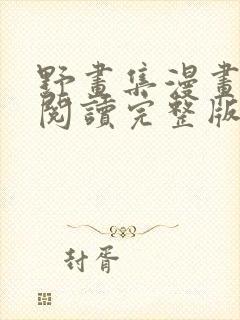 野畫集漫畫
閱讀完整版
封胥